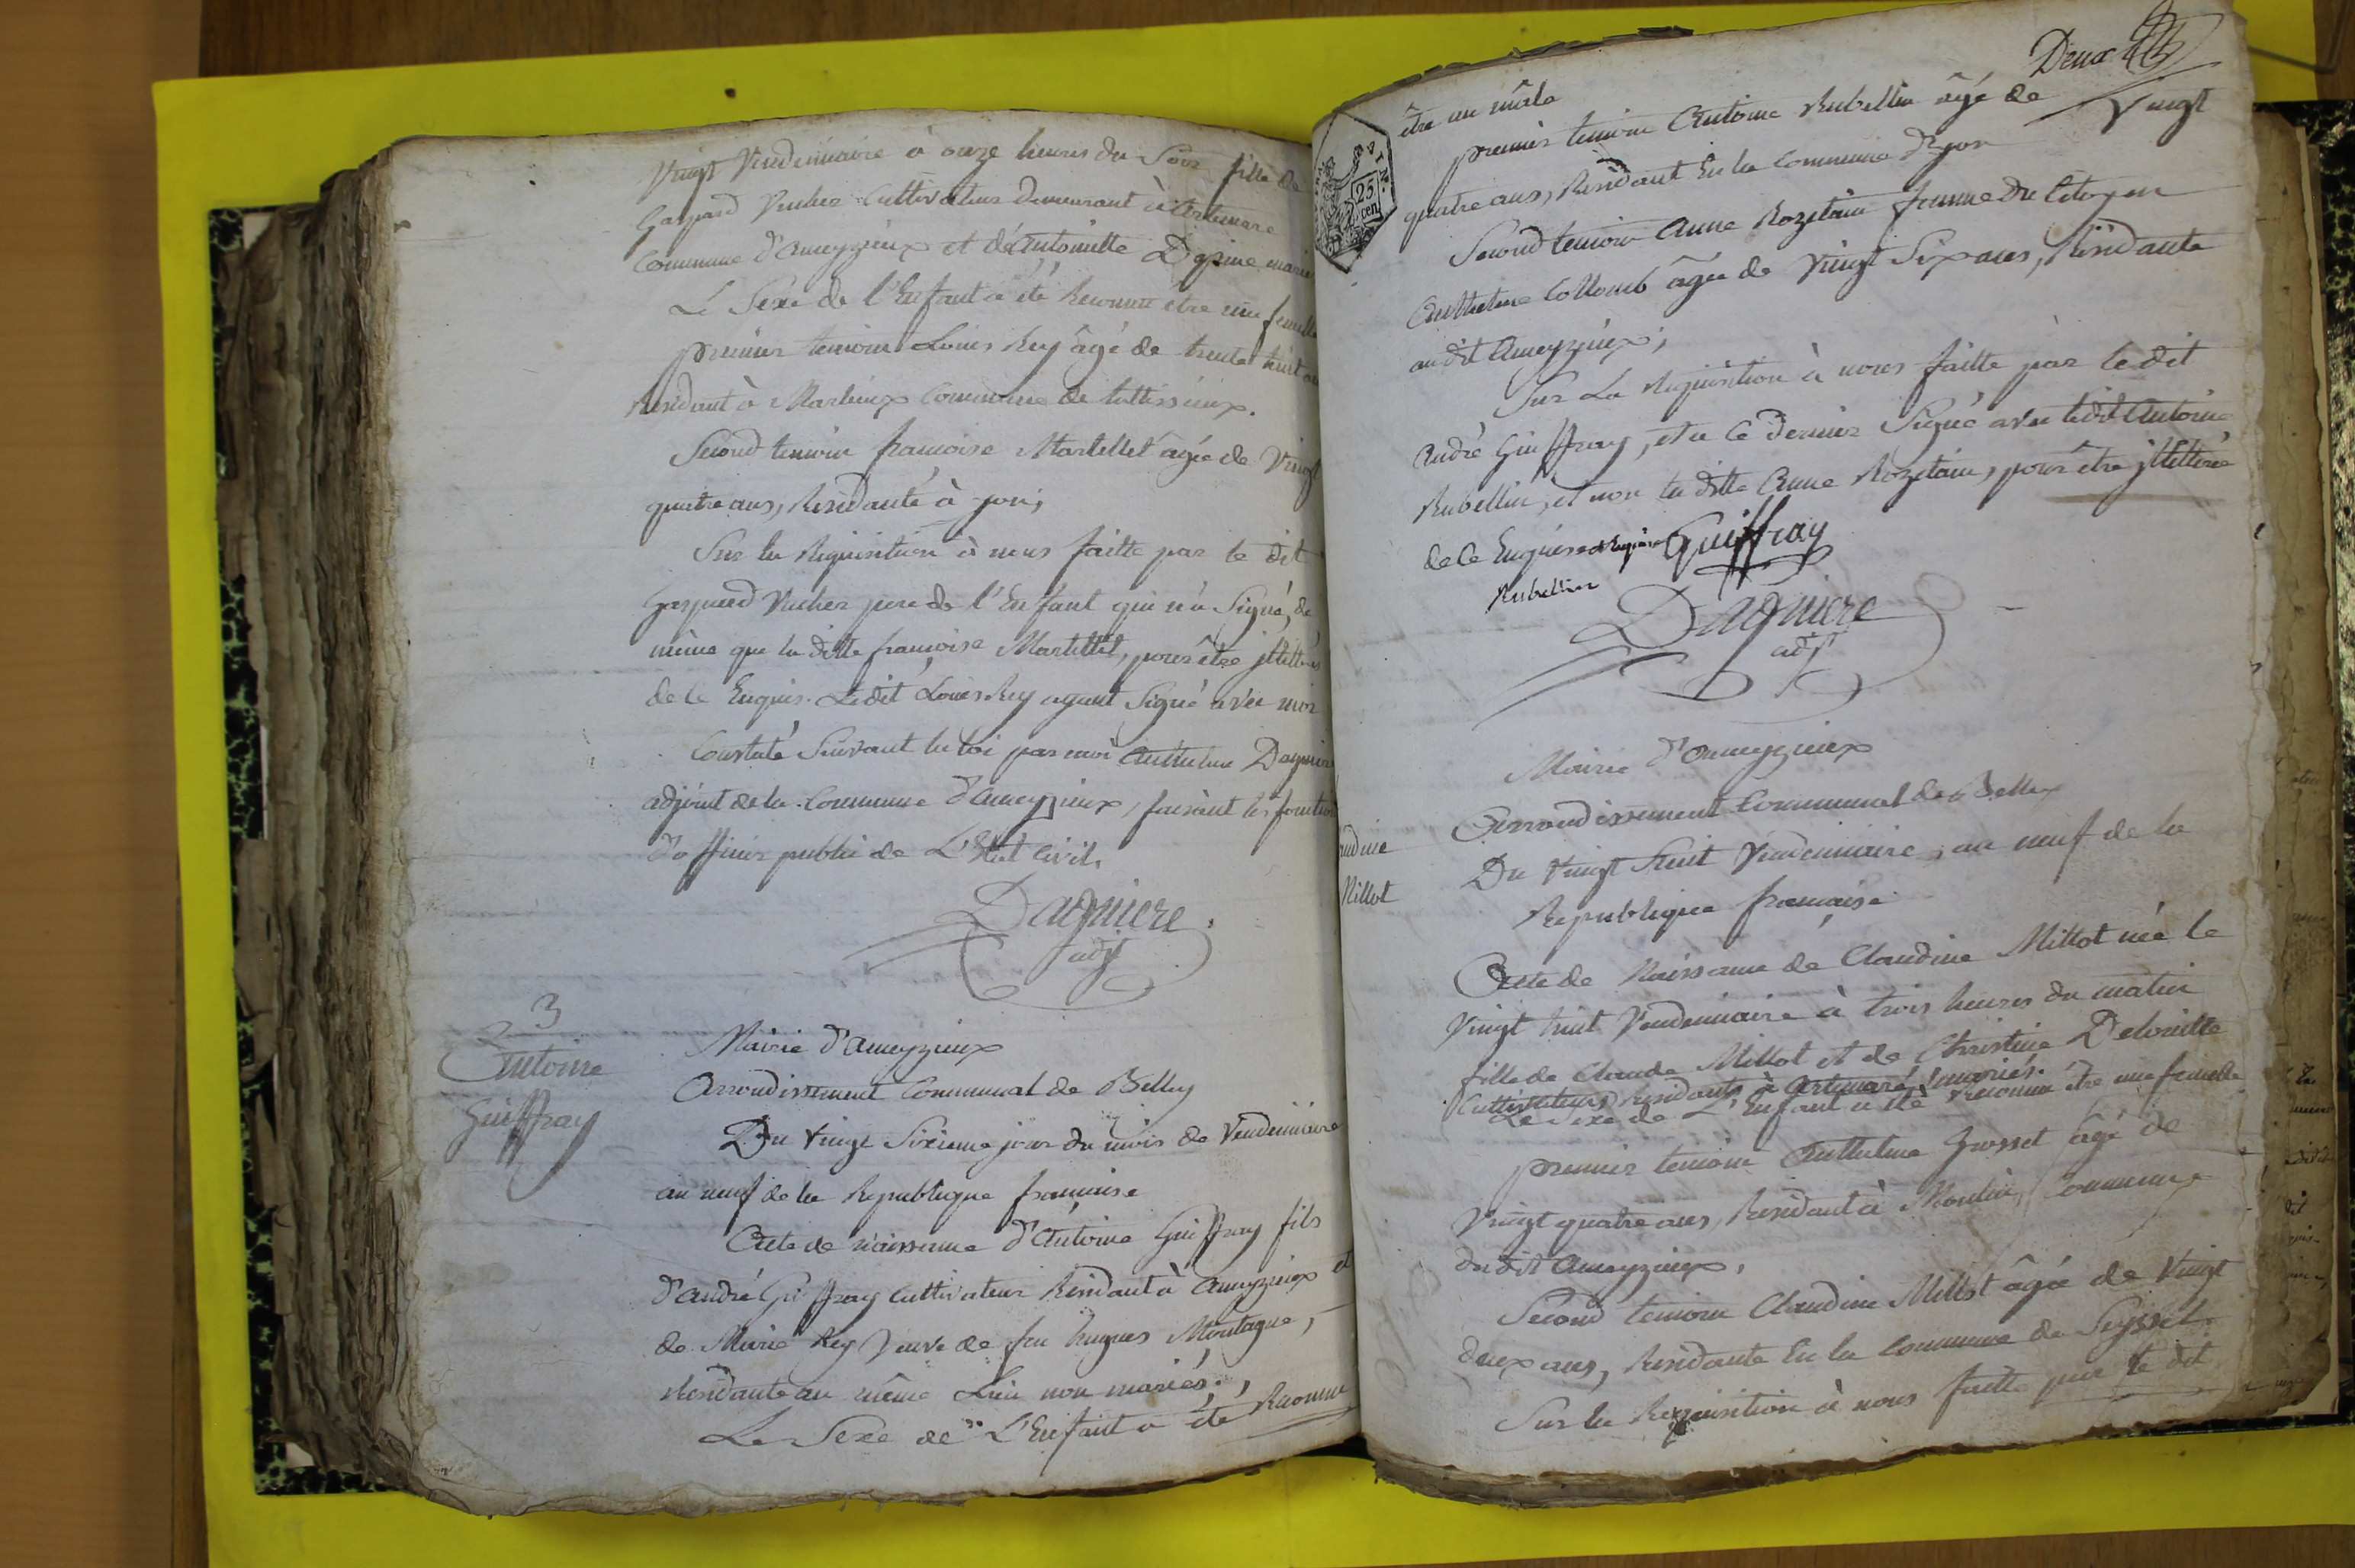 Vingt Vendemiaire à onze heures du Soir fille de
Gaspard Vuches Cultivateur Demeurant à Artemare
Commune d'ameyzieux et dé antoinette marié
Le Sexe de l'Enfant a été Reconnu être une femelle
premier temoin Louis Rey âgé de trente huit
Résidant à Martinieux Commune de
Second temoin francoise Martellet agée de Vingt
quatre ans, Residante à yon;
Sur la Requisition à nous faitte par le dit
Gaspard Vucher pere de l'Enfant qui n'a Signé, de
même que la ditte françoise Martellet, pour être jllittérés
de ce Enquis. Ledit Louis Rey ayant Signé avec moi
Constaté Suivant la loi par moi Anthelme Dagniere
adjoint de la Commune d'ameyzieux, faisant les fonctions
d'officier public de L'Etat Civil.
Dagniere
adjt
3
Antoine
Guiffray
Mairie d'ameyzieux
Arrondissement Communal de Belley
Du Vingt Sixieme jour du mois de Vendemiaire
an neuf de la Republique francaise
Acte de naissance d'Antoine Guiffray fils
d'andré Guiffray Cultivateur Residant à ameyzieux et
de Marie Rey Veuve de feu hugues Montagne,
Residante au même Lieu non mariés;,
Le Sexe de L'Enfant a été Reconnu
Deux
être un mâle
premier temoin Antoine Rubellin âgé de Vingt
quatre ans, Residant En la Commune d'yon
Second temoin Anne Rozetain femme du Citoyen
Anthelme Collomb âgée de Vingt Six ans, Résidante
au dit Ameyzieux;
Sur La Requisition à nous faitte par le dit
André Guiffray, et a ce dernier Signé avec ledit Antoine
Rubellin, et non la ditte Anne Rozetain, pour être jllittérée
de ce Enquise Guiffray
Rubellin
Dagniere
adjt
Mairie d'ameyzieux
Arrondissement Communal de Belley
audine
Millot
Du Vingt huit Vendemiaire, an neuf de la
Republique francaise
Acte de Naissance de Claudine Millot née le
Vingt huit Vendemiaire à trois heures du matin
fille de Claude Millot et de Christine Delouille
Cultivateurs, Residants à Artemare, mariés.
Le Sexe de L'Enfant a été Reconnu être une femelle
premier temoin Anthelme Grosset âgé de
Vingt quatre ans, Residant à Moulin, Commune
du dit Ameyzieux,
Second temoin Claudine Millot âgée de Vingt
deux ans, Residante En la Commune de Seyssel.
Sur la Requisition à nous faitte par le dit
25
cen
AIN.